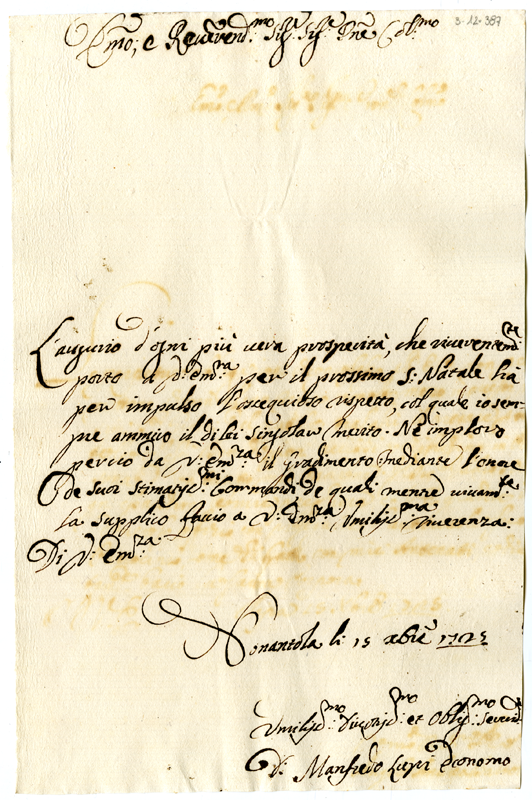 3.12.387
Em̃o, e Reverend:mo Sig:re Sig:re Pñe Col:mo
L'augurio d'ogni più vera prosperità, che riverentem:te
porto a V: Em:za per il prossimo S: Natale hà
per impulso l'ossequioso rispetto, col quale io sem-
pre ammiro il di lei singolar merito. Ne imploro
perciò da V: Em:za il gradimento mediante l'onore
de suoi stimatiss:mi Commandi de quali mentre vivam:te
la supplico faccio a V: Em:za Umiliss:ma riverenza:
Di V: Em:za
Nonantola li 15 xbre
Umiliss:mo Divotiss:mo et Oblig:mo Serv:re
D. Manfredo Economo